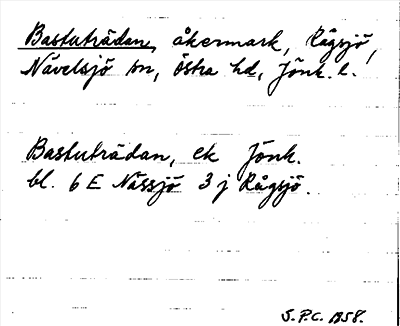 Bastuträdan, åkermark, Rågsjö,
Nävelsjö sn, Östra hd, Jönk. l.
Bastuträdan, ek Jönk.
bl. 6 E Nässjö 3 j Rågsjö.
S.P.C. 1958.